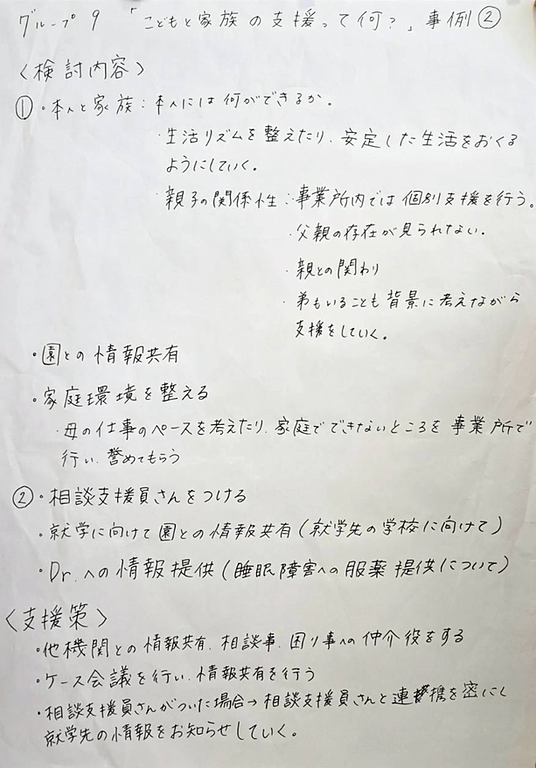 グループ9 「こどもと家族の支援って何?」事例②
〈検討内容〉
①・本人と家族:本人には何ができるか。
・生活リズムを整えたり、安定した生活をおくる
ようにしていく。
・親子の関係性:事業所内では個別支援を行う。
・父親の存在が見られない。
・親との関わり
・弟もいることも背景に考えながら
支援をしていく。
・園との情報共有
・家庭環境を整える
・母の仕事のペースを考えたり、家庭でできないところを事業所で
行い、誉めてもらう
②・相談支援員さんをつける
・就学に向けて園との情報共有(就学先の学校に向けて)
・Dr.への情報提供(睡眠障害への服薬提供について)
〈支援策〉
・他機関との情報共有、相談事、困り事への仲介役をする
・ケース会議を行い、情報共有を行う
・相談支援員さんがついた場合→相談支援員さんと連携を密にし
就学先の情報をお知らせしていく。